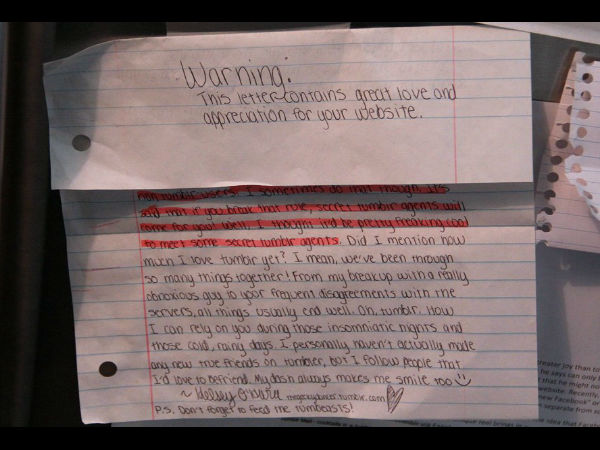 Warning:
This letter contains great love and
appreciation for your website.
non tumblr users. I sometimes do that though. It's
said that if you break that rule, secret tumblr agents will
come for you! Well, I thought it'd be pretty freaking cool
to meet some secret tumblr agents. Did I mention how
much I love tumblr yet? I mean, we've been through
so many things together! From my breakup with a really
obnoxious guy to your frequent disagreements with the
servers, all things usually end well. Oh, tumblr. How
I can rely on you during those insomniatic nights and
those cold, rainy days. I personally haven't actually made
any new true friends on tumbler, but I follow people that
I'd love to befriend. My dash always makes me smile too
~ Kelsey
P.S. Don't forget to feed the tumbeasts!
greater joy than to
he says can only b
that he might no
website. Recently,
new Facebook" or
separate from so
idea that I